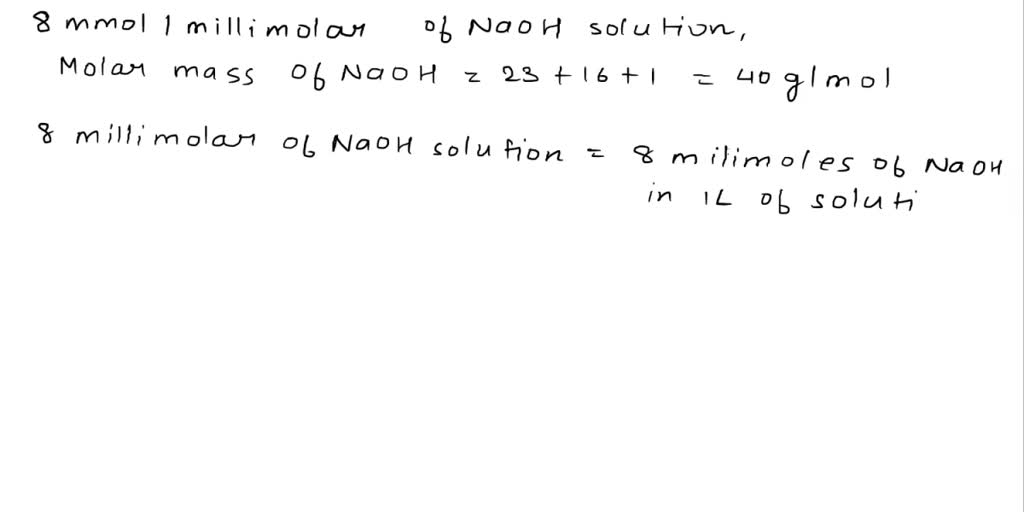 8 mmol / millimolar of NaOH solution,
Molar mass of NaOH = 23 + 16 + 1 = 40 g/mol
8 millimolar of NaOH solution = 8 milimoles of NaOH
in 1L of soluti